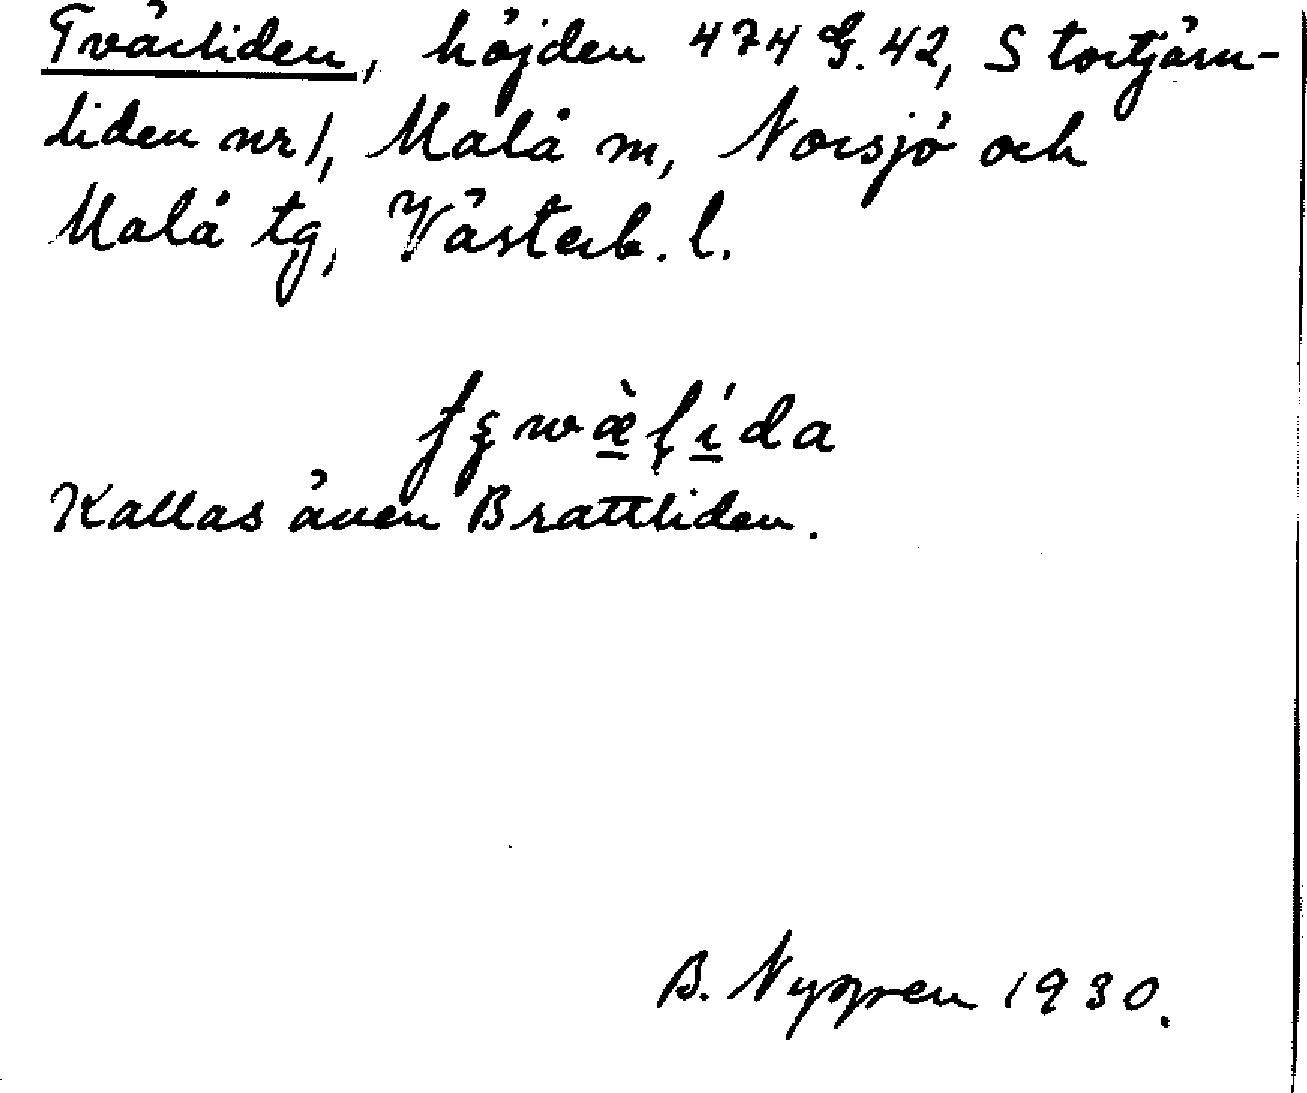 Tvärliden, höjden 474 G. 42, Stortjärn-
liden nr 1, Malå m, Norsjö och
Malå tg, Västerb. l.
Kallas även Brattliden.
B. Nygren 1930.